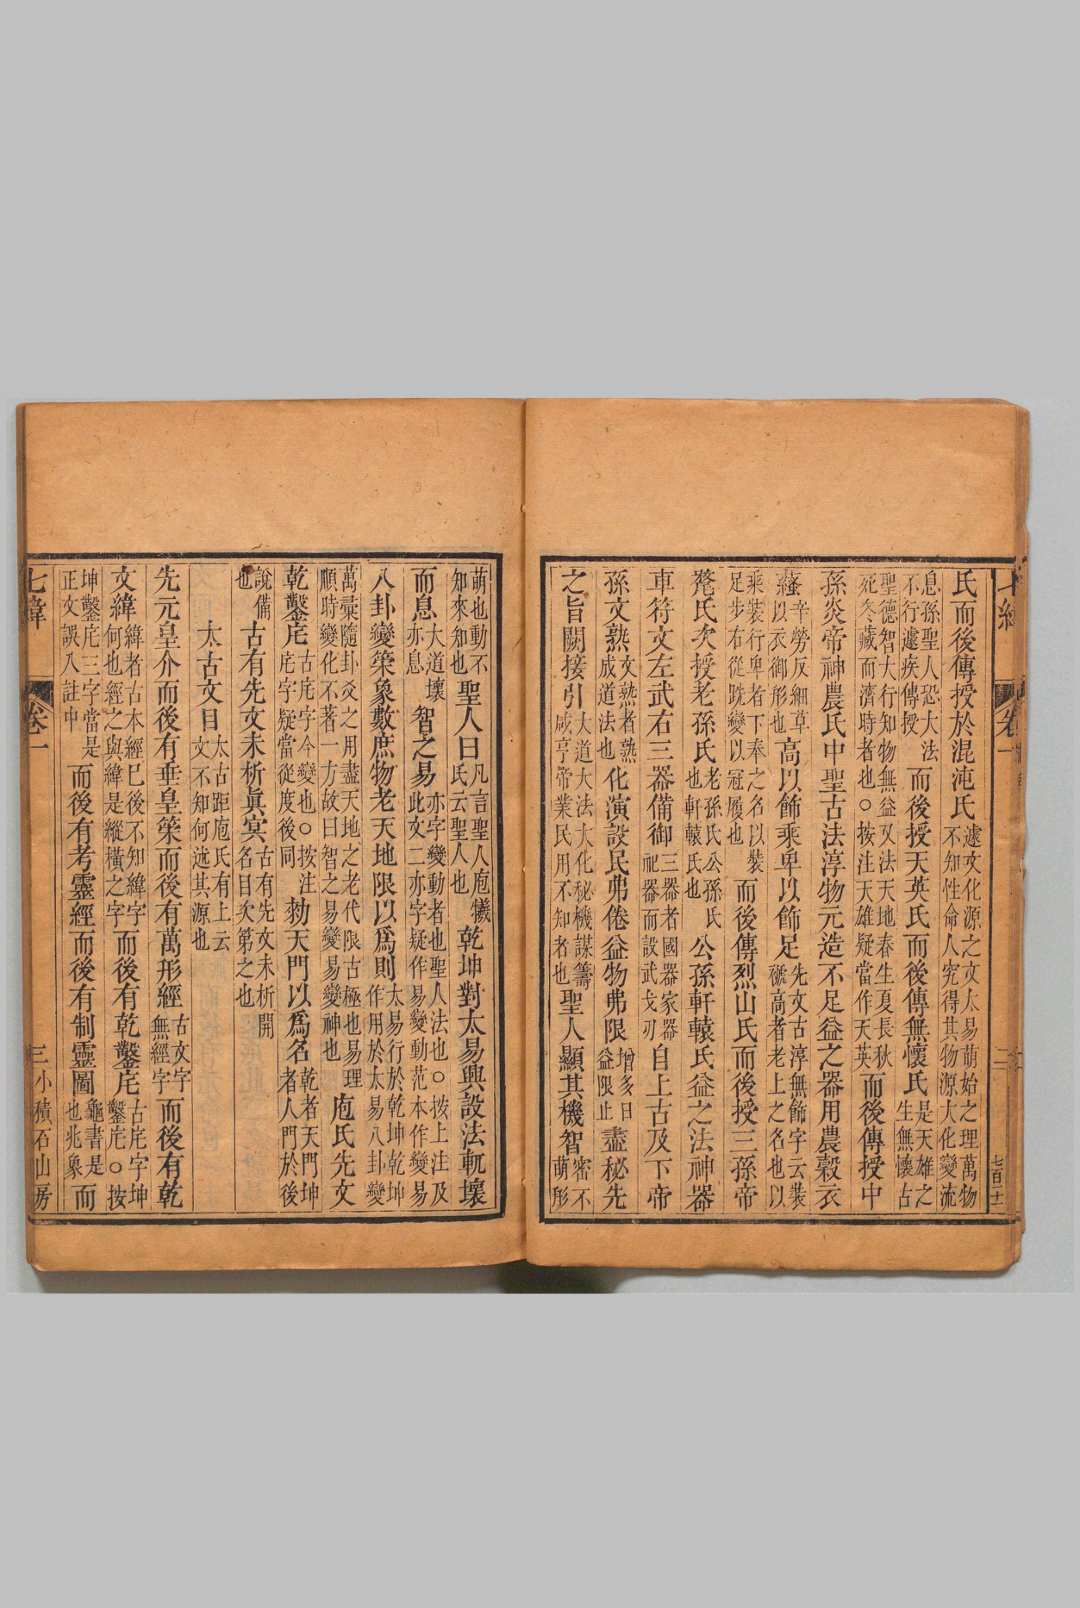 氏而後傳授於混沌氏遽文化源之文太易萌始之理萬物
不知性命人究得其物源大化變流
息孫聖人恐大法
不行遽疾傳授而後授天英氏而後傳無懷氏是天雄之
生無懷古
聖德智大行知物無益又法天地春生夏長狄
死冬藏而濟時者也○按注天雄疑當作天英而後傳授中
孫炎帝神農氏中聖古法淳物元造不足益之器用農穀衣
辛勞反細草
以衣御形也高以飾乘卑以飾足先文古淳無飾字云裝
高者老上之名也以
乘裝行卑者下奉之名以裝
足步右從跣變以冠履也而後傳烈山氏而後授三孫帝
氏次授老孫氏老孫氏公孫氏
也軒轅氏也公孫軒轅氏益之法神器
車符文左武右三器備御三器者國器家器
祀器而設武戈刃自上古及下帝
孫文熟文熟者熟
成道法也化演設民弗倦益物弗限增多日
益限止盡秘先
之旨闢接引大道大法大化秘機謀籌
咸亨帝業民用不知者也聖人顯其機智密不
萌形
七緯
卷一
二
七百二十
萌也動不
知來知也聖人曰凡言聖人庖犧
氏云聖人也乾坤對太易興設法軌壞
而息大道壞
亦息智之易亦字變動者也聖人法也○按上注及
此文二亦字疑作易變動范本作變易
八卦變策象數庶物老天地限以為則太易行於乾坤乾坤
作用於太易八卦變
萬彙隨卦爻之用盡天地之老代限古極也易理
順時變化不著一方故曰智之易變易變神也庖氏先文
乾鑿㡯古㡯字今變也○按注
㡯字疑當從度後同勑天門以為名乾者天門坤
者人門於後
說備
也古有先文未析眞冥古有先文未析開
名目次第之也
太古文目太古距庖氏有上云
文不知何述其源也
先元皇介而後有垂皇策而後有萬形經古文字
無經字而後有乾
文緯緯者古本經已後不知緯字
何也經之與緯是縱橫之字而後有乾鑿㡯古㡯字坤
鑿㡯○按
坤鑿㡯三字當是
正文誤入註中而後有考靈經而後有制靈圖龜書是
也兆象而
七緯
卷一
三
小積石山房